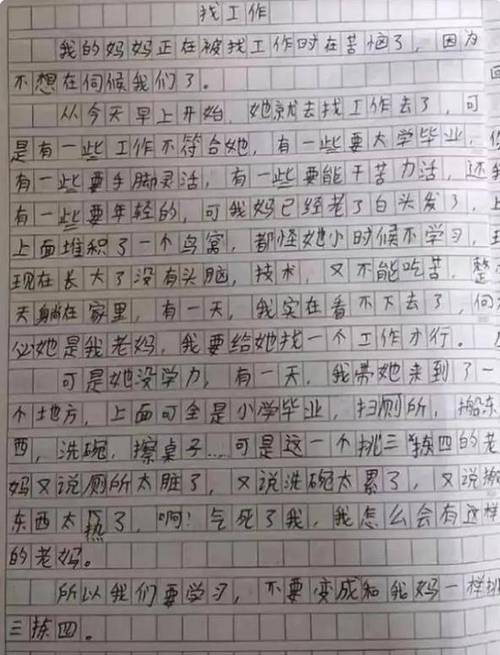 找工作
我的妈妈正在被找工作时在苦恼了，因为
不想在伺候我们了。
从今天早上开始，她就去找工作去了，可
是有一些工作不符合她，有一些要大学毕业，
有一些要手脚灵活，有一些要能干苦力活，还
有一些要年轻的，可我妈已经老了白头发了，上
上面堆积了一个鸟窝，都怪她小时候不学习，
现在长大了没有头脑，技术，又不能吃苦，整
天躺在家里，有一天，我实在看不下去了，何
必她是我老妈，我要给她找一个工作才行。
可是她没学力，有一天，我带她来到了一
个地方，上面可全是小学毕业，扫厕所，搬东
西，洗碗，擦桌子...可是这一个挑三拣四的老
妈又说厕所太脏了，又说洗碗太累了，又说搬
东西太热了，啊！气死了我，我怎么会有这样
的老妈。
所以我们要学习，不要变成和我妈一样挑
三拣四。